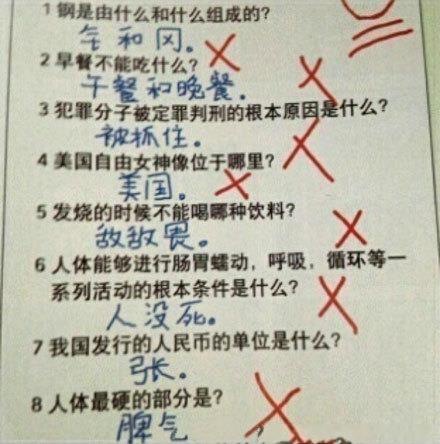 1 钢是由什么和什么组成的?
钅和冈。
2 早餐不能吃什么?
午餐和晚餐。
3 犯罪分子被定罪判刑的根本原因是什么?
被抓住。
4 美国自由女神像位于哪里?
美国。
5 发烧的时候不能喝哪种饮料?
敌敌畏。
6 人体能够进行肠胃蠕动，呼吸，循环等一
系列活动的根本条件是什么?
人没死。
7 我国发行的人民币的单位是什么?
张。
8 人体最硬的部分是?
脾气